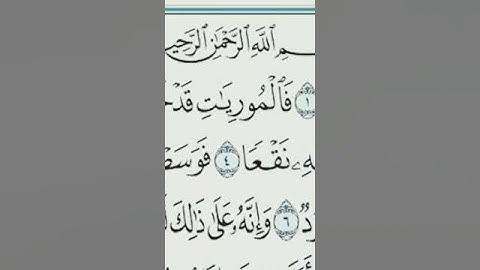 ـمِ ٱللَّهِ ٱلرَّحْمَٰنِ ٱلرَّحِيـ
١ فَٱلْمُورِيَٰتِ قَدْحـ
ـهِۦ نَقْعًا ٤ فَوَسَطْـ
ـودٌ ٦ وَإِنَّهُۥ عَلَىٰ ذَٰلِكَ لَـ